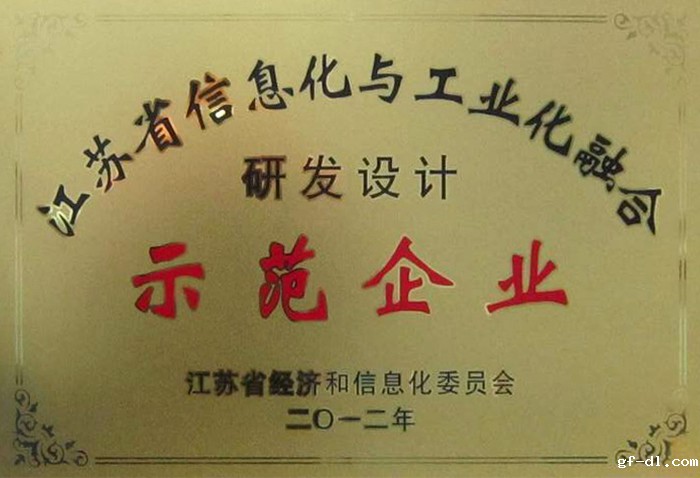 江苏省信息化与工业化融合
研发设计
示范企业
江苏省经济和信息化委员会
二〇一二年
gf-dl.com